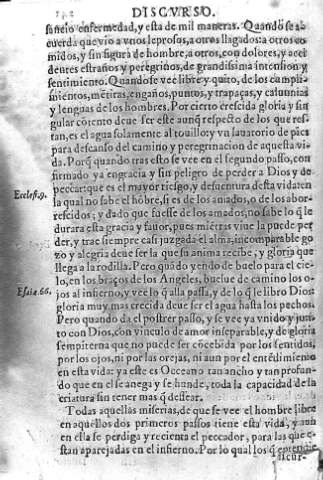 DISCVRSO.
suneio enfermedad, y esta de mil maneras. Quando se a-
cuerda que vio a vnos leprosos, a otros llagados: a otros co-
midos, y sin figura de hombre, a otros, con dolores, y acci
dentes estraños y peregrinos, de grandissima intension y
sentimiento. Quando se vee libre y quito, de los compli-
mientos, mẽtiras, engaños, puntos, y trapaças, y calunnias
y lenguas de los hombres. Por cierto crescida gloria y sin
gular cõtento deue ser este aunq̃ respecto de los que res-
tan, es el agua solamente al touillo: y vn lauatorio de pies
para descanso del camino y peregrinacion de aquesta vi-
da. Porq̃ quando tras esto se vee en el segundo passo, con
firmado ya en gracia y sin peligro de perder a Dios y de
peccar: que es el mayor riesgo, y desuentura desta vida en
Ecclesi. 9.
la qual no sabe el hõbre, si es de los amados, o de los abor-
rescidos; y dado que fuesse de los amados, no sabe lo q̃ le
durara esta gracia y fauor, pues miẽtras viue la puede per
der, y trae siempre casi juzgada el alma, incomparable go-
zo y alegria deue ser la que su anima recibe, y gloria que
llega a la rodilla. Pero quãdo yendo de buelo para el cie-
lo, en los braços de los Angeles, buelue de camino los o-
Esaiæ. 66.
jos al infierno, y vee lo q̃ alla passa, y de lo q̃ se libro Dios:
gloria muy mas crecida deue ser el agua hasta los pechos.
Pero quando da el postrer passo, y se vee ya vnido y jun-
to con Dios, con vinculo de amor inseparable, y de gloria
sempiterna que no puede ser cõcebida por los sentidos,
por los ojos, ni por las orejas, ni aun por el entẽdimiento
en esta vida: ya este es Occeano tan ancho y tan profun-
do que en el se anega y se hunde, toda la capacidad de la
criatura sin tener mas q̃ dessear.
Todas aquellas miserias, de que se vee el hombre libre
en aquellos dos primeros passos tiene esta vida, y aun
en ella se perdiga y recienta el peccador, para las que es-
tan aparejadas en el infierno. Por lo qual los q̃